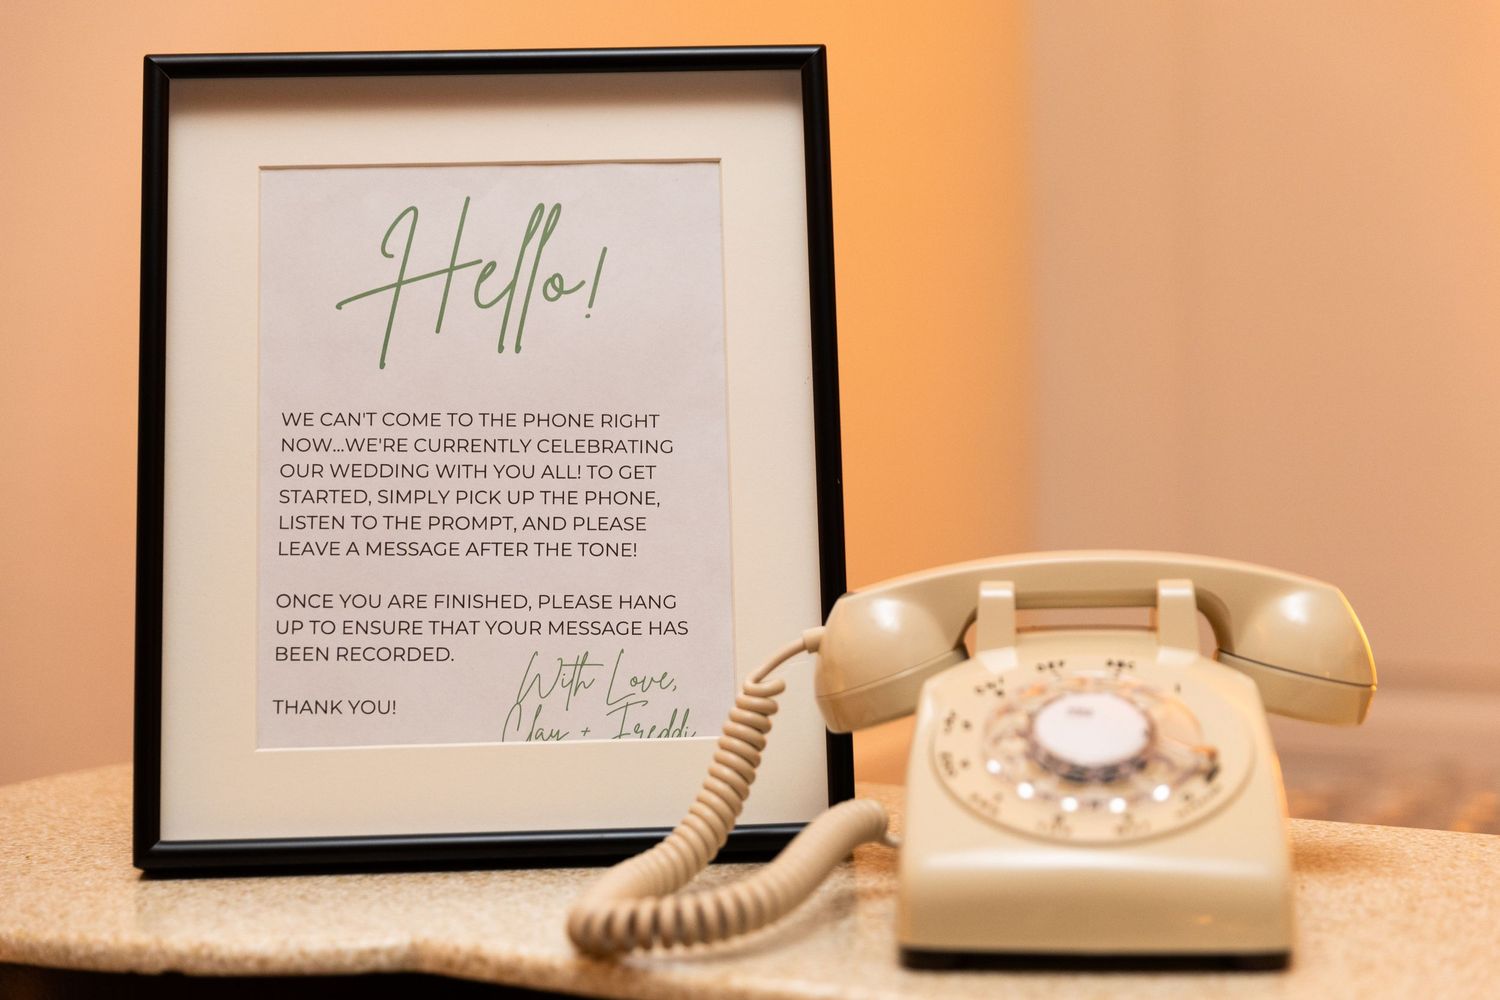 Hello!
WE CAN'T COME TO THE PHONE RIGHT
NOW...WE'RE CURRENTLY CELEBRATING
OUR WEDDING WITH YOU ALL! TO GET
STARTED, SIMPLY PICK UP THE PHONE,
LISTEN TO THE PROMPT, AND PLEASE
LEAVE A MESSAGE AFTER THE TONE!
ONCE YOU ARE FINISHED, PLEASE HANG
UP TO ENSURE THAT YOUR MESSAGE HAS
BEEN RECORDED.
With Love,
THANK YOU!
+ Freddi